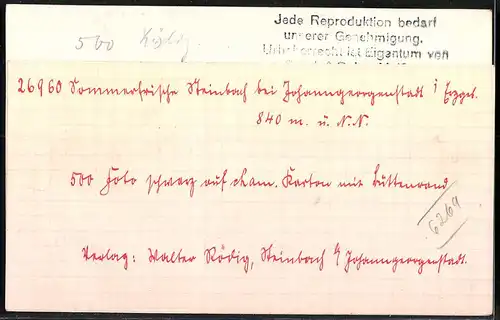 500
Jede Reproduktion bedarf
unserer Genehmigung.
Urheberrecht ist Eigentum von
26960 Sommerfrische Steinbach bei Johanngeorgenstadt i Erzgeb.
840 m. ü. N.N.
500 Foto schwarz auf cham. Karton mit Büttenrand
6269
Verlag: Walter Rödig, Steinbach b/ Johanngeorgenstadt.